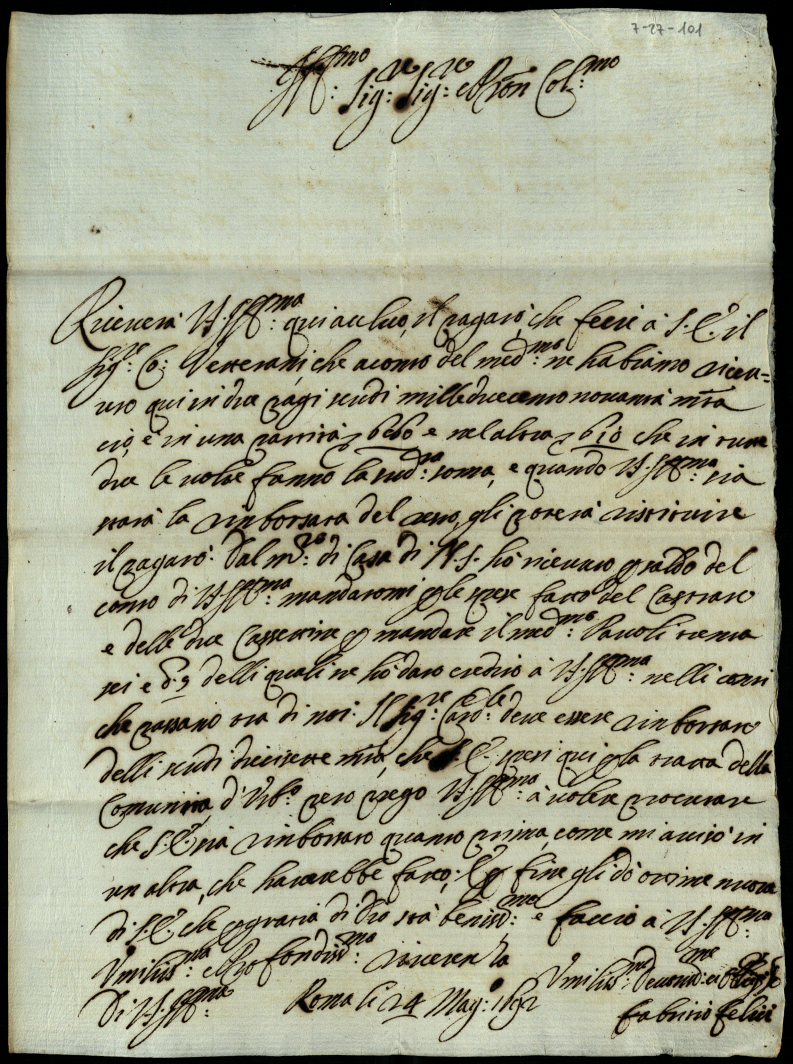 7-27-101
Ill:mo Sig:re Sig:re e Pron Col:mo
Riceverà V.S. Ill:ma qui accluso, il pagarò, che fece à S. E. il
Sig:re Co: Veterani, che a conto del med:mo ne habiamo ricev=
uto qui in due pag.i scudi mille duecento novanta m.ta
ciò è in una partita 680 e nel altra 610 che in tutte
due le volte fanno la sud:ta soma, e quando V.S. Ill:ma sia
starà la rimborsata del resto, gli potrà restituire
il pagarò. Dal m:ro di Casa di N.S. hò ricevuto p saldo del
conto di V.S. Ill:ma mandatomi p le spese fatte del
e delle due Cassettine p mandare il med:mo Pavoli trenta
sei e d. 9 delli quali ne hò dato credito à V.S. Ill:ma nelli conti
che passano tra di noi. Il Sig:re Card:le deve essere rimborsato
delli scudi diecisette m.ta, che S. E. spesi qui p la tratta della
Comunità d'Urb:o però prego V.S. Ill:ma à voler procurare
che S. E. sia rimborsato quanto prima, come mi avisò in
un altra, che haverebbe fatto; E p fine gli dò ottime nuove
di S. E. che p gratia di Dio stà beniss:mo e faccio à V.S. Ill:ma
Umiliss:ma e Profondiss:ma riverenza
Di V.S. Ill:ma Roma li 24 Mag:o 1692 Umiliss:mo Devotiss:mo et Oblig:
Fabritio Felici